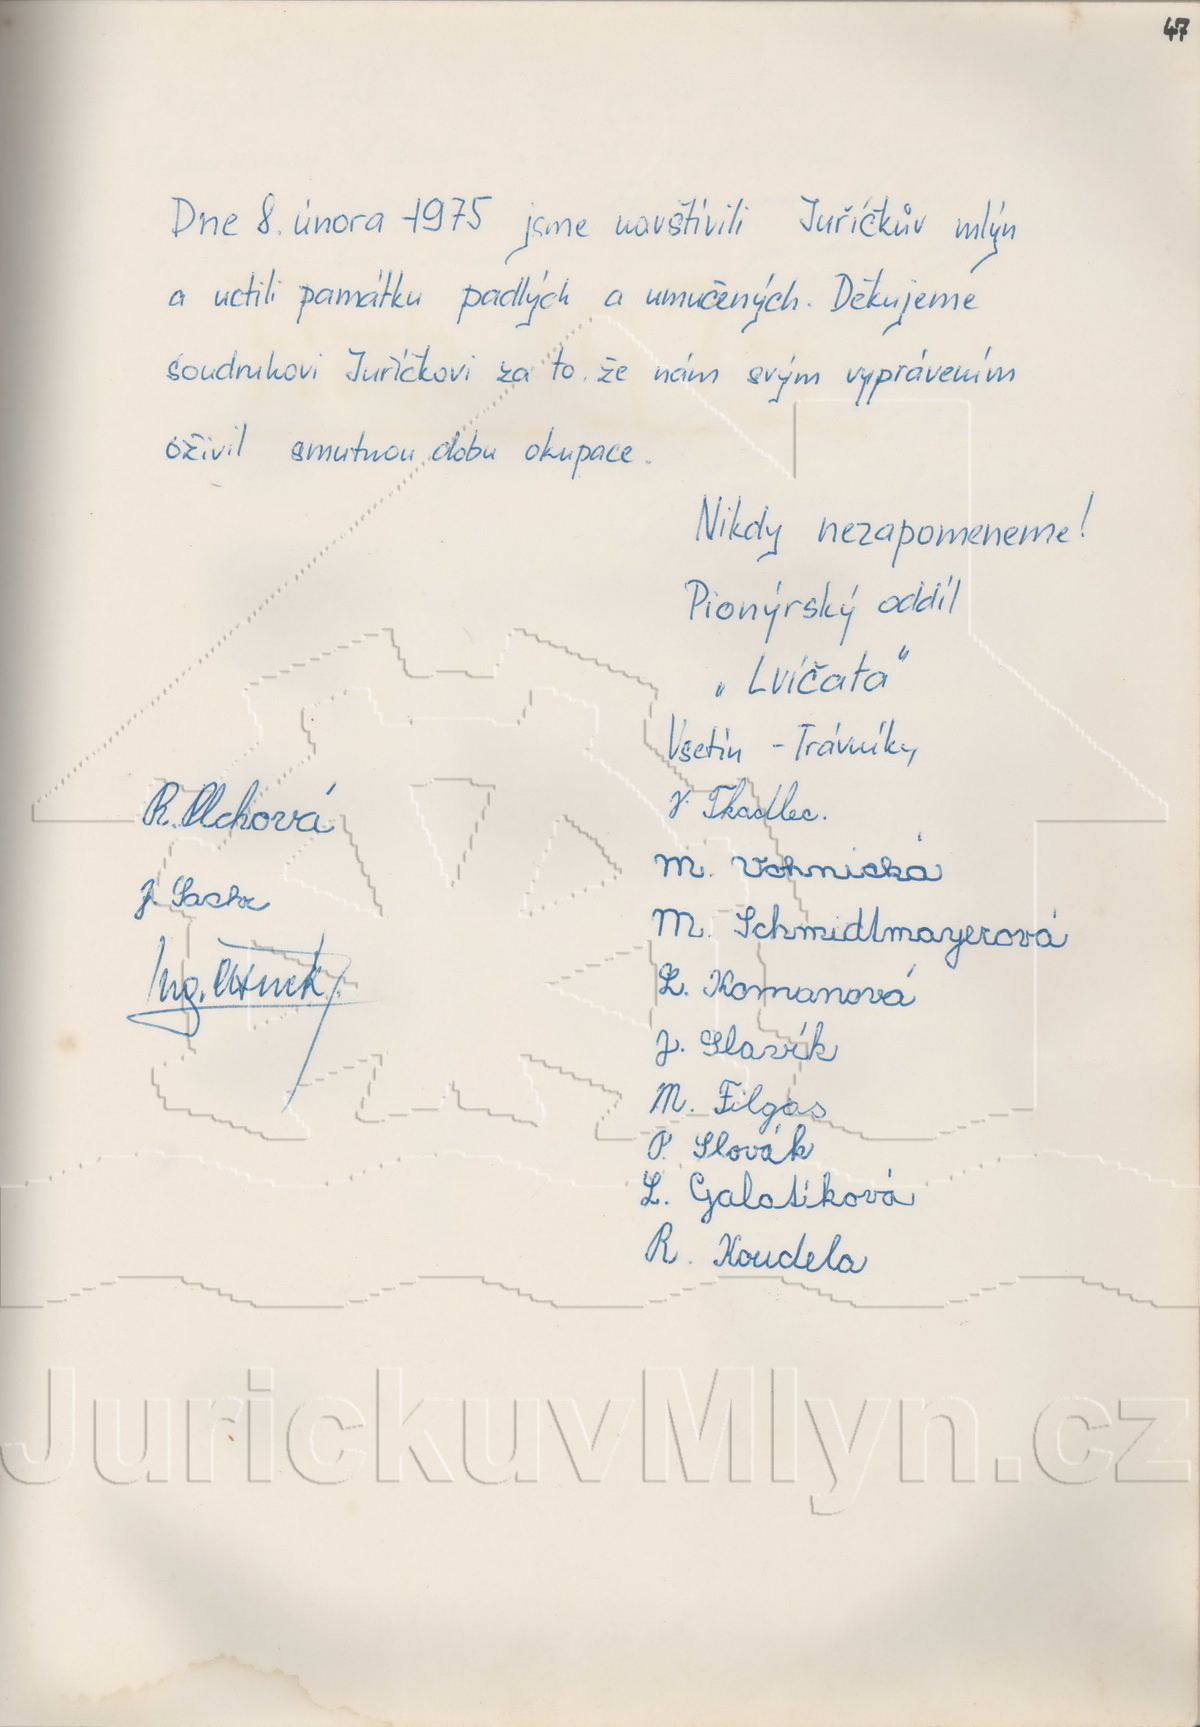 47
Dne 8. února 1975 jsme navštívili Juříčkův mlýn
a uctili památku padlých a umučených. Děkujeme
soudruhovi Juříčkovi za to, že nám svým vyprávením
oživil smutnou dobu okupace.
Nikdy nezapomeneme!
Pionýrský oddíl
„Lvíčata"
Vsetín - Trávníky
R. Olchová
J.
Ing.
V. Tkadlec.
M. Vohnická
M. Schmidlmayerová
L. Komanová
J. Slavík
M. Filgas
P. Slovák
L. Galatíková
R. Koudela
JurickuvMlyn.cz